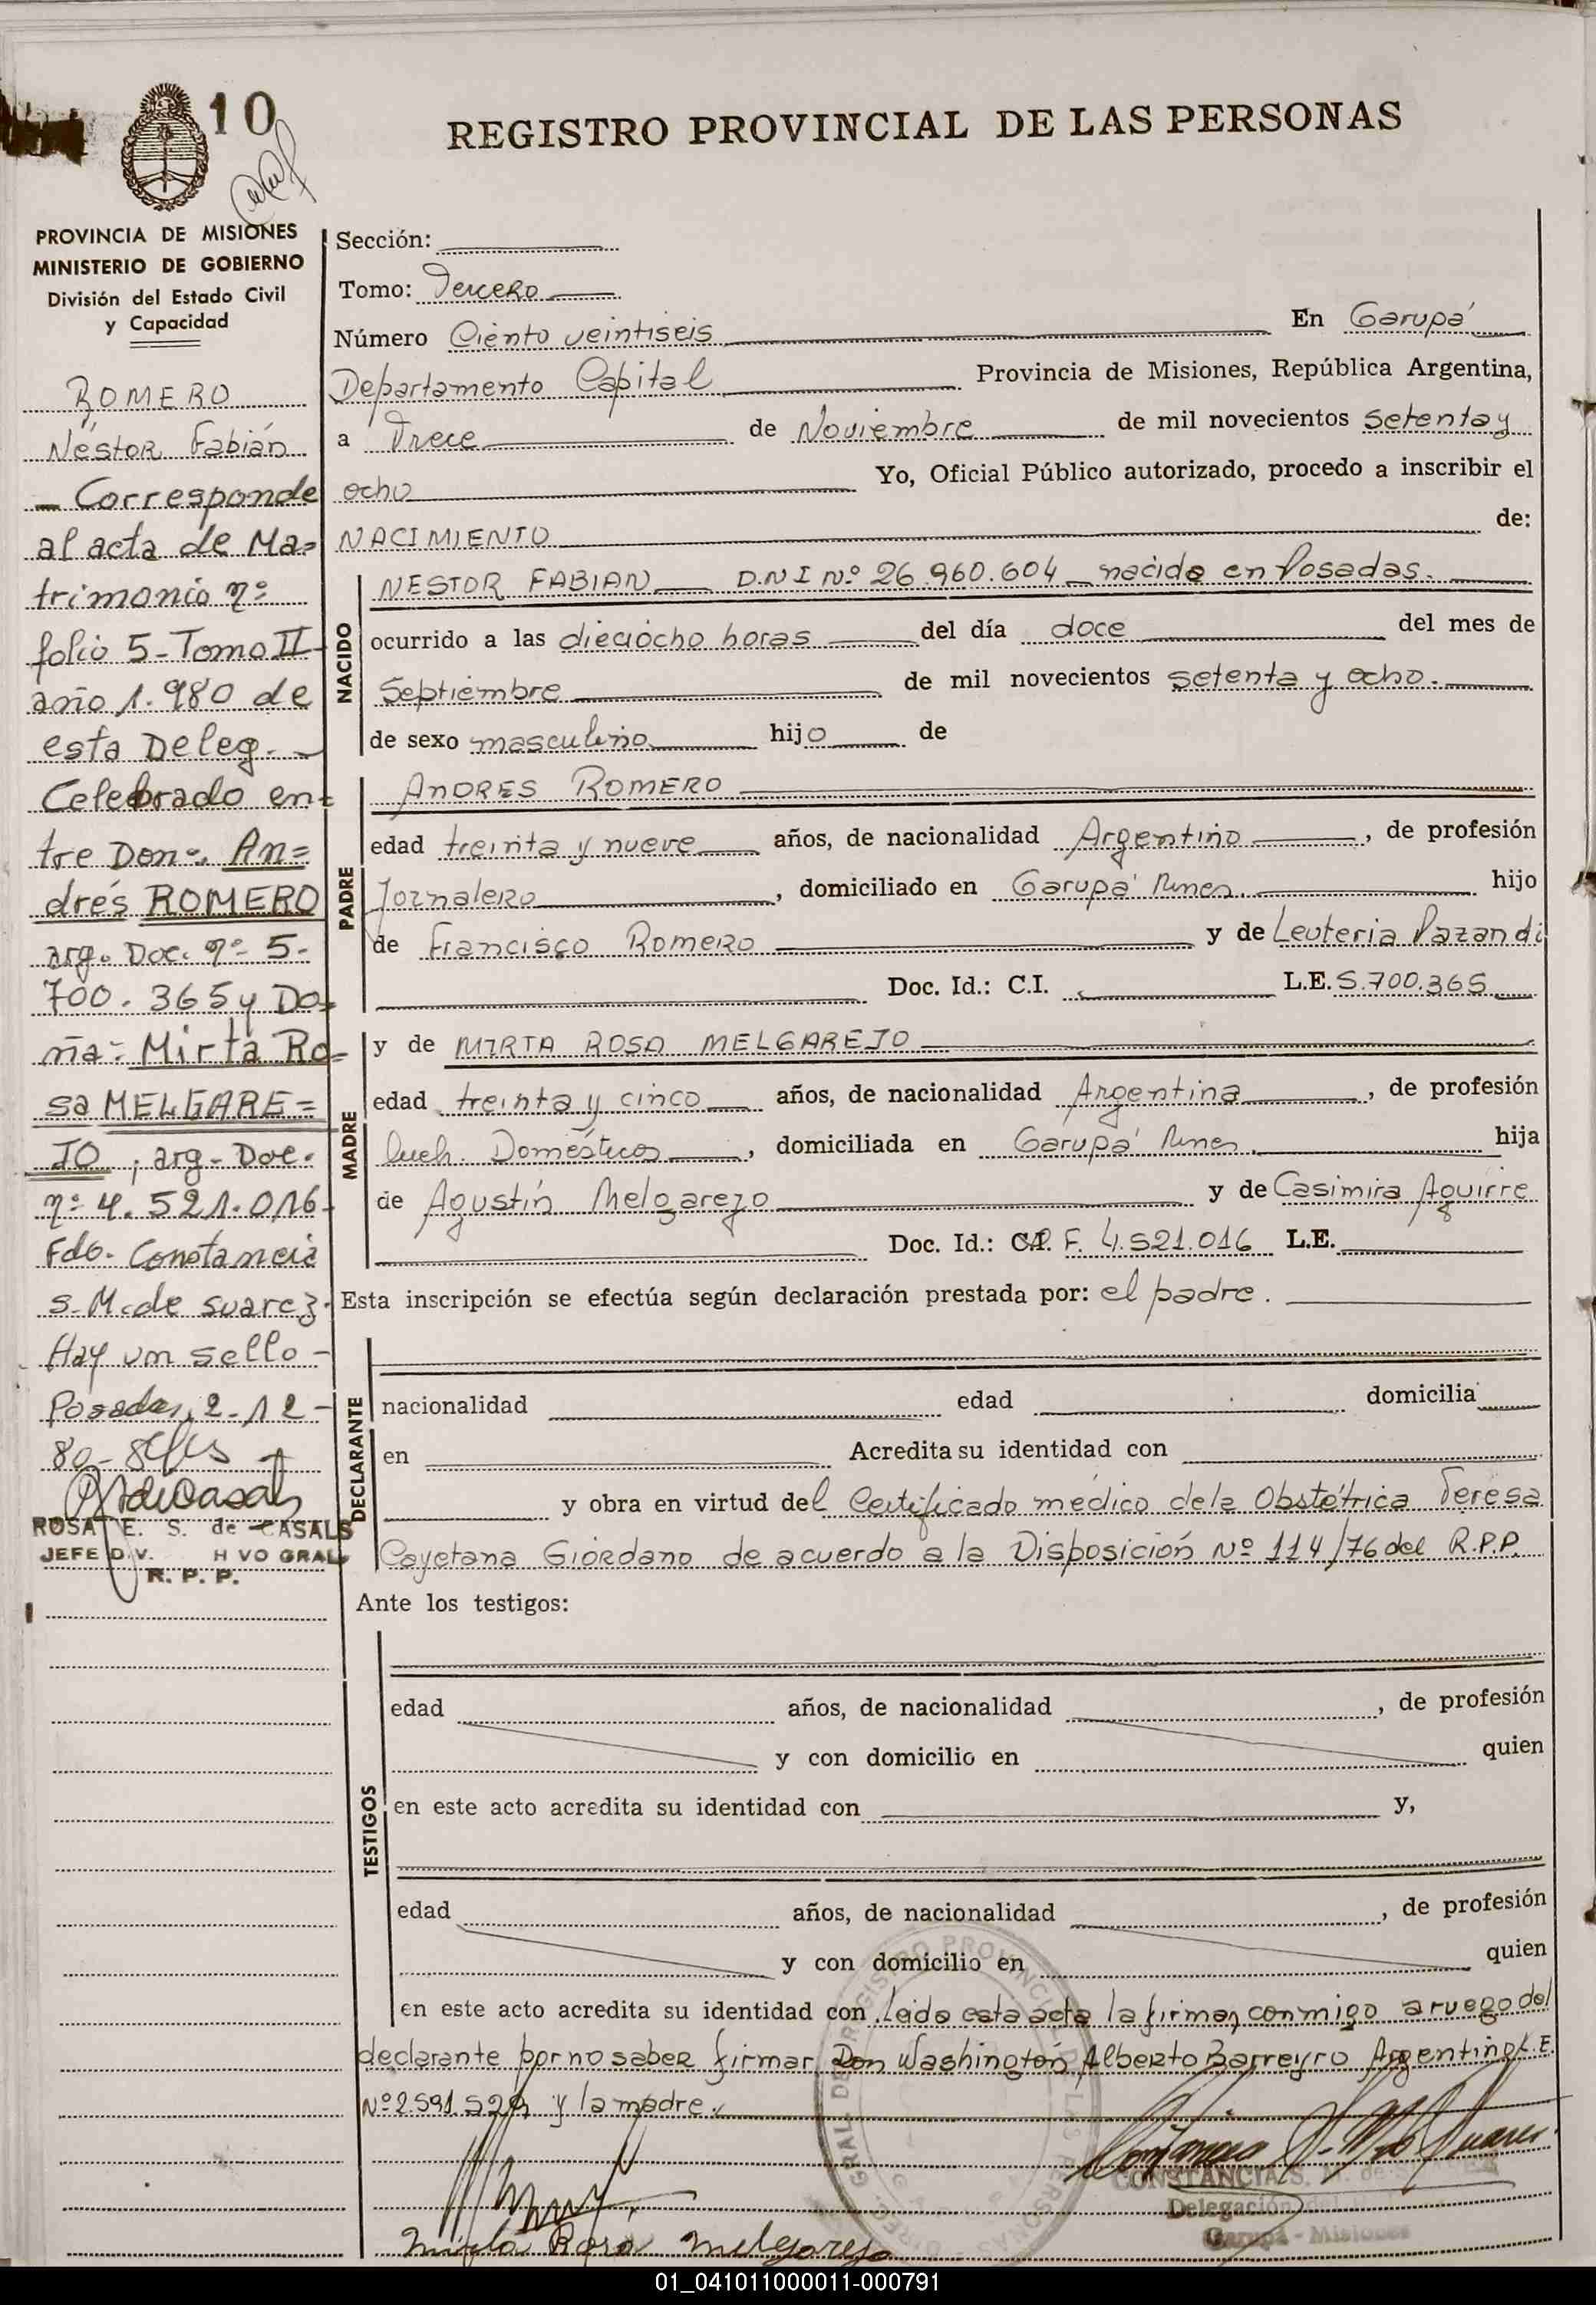 10
REGISTRO PROVINCIAL DE LAS PERSONAS
PROVINCIA DE MISIONES
MINISTERIO DE GOBIERNO
División del Estado Civil
y Capacidad
ROMERO
Néstor Fabián
- Corresponde
al acta de Ma=
trimonio nº
folio 5 - Tomo II
año 1.980 de
esta Deleg.
Celebrado en=
tre Don: An=
drés ROMERO
arg. Doc. nº 5.
700.365 y Do=
ña: Mirta Ro=
sa MELGARE=
JO; arg - Doc.
nº 4.521.016
Fdo. Constancia
S. M. de Suarez.
Hay un sello -
Posadas, 2-12-
80-
ROSA E. S. de CASALS
JEFE DIV. H VO GRAL
R. P. P.
Sección:
Tomo: Tercero
Número Ciento veintiseis En Garupá
Departamento Capital Provincia de Misiones, República Argentina,
a Trece de Noviembre de mil novecientos setenta y
ocho Yo, Oficial Público autorizado, procedo a inscribir el
NACIMIENTO de:
NACIDO
NESTOR FABIAN D.N.I Nº 26.960.604 nacido en Posadas.
ocurrido a las dieciocho horas del día doce del mes de
Septiembre de mil novecientos setenta y ocho.
de sexo masculino hijo de
PADRE
ANDRES ROMERO
edad treinta y nueve años, de nacionalidad Argentino, de profesión
Jornalero, domiciliado en Garupá Mnes. hijo
de Francisco Romero y de Leuteria Pazandi
Doc. Id.: C.I. L.E. 5.700.365
MADRE
y de MIRTA ROSA MELGAREJO
edad treinta y cinco años, de nacionalidad Argentina, de profesión
Queh. Domésticos, domiciliada en Garupá Mnes. hija
de Agustín Melgarejo y de Casimira Aguirre
Doc. Id.: C.I. F. 4.521.016 L.E.
Esta inscripción se efectúa según declaración prestada por: el padre.
DECLARANTE
nacionalidad edad domicilia
en Acredita su identidad con
y obra en virtud del Certificado médico de la Obstétrica Teresa
Cayetana Giordano de acuerdo a la Disposición Nº 114/76 del R.P.P.
Ante los testigos:
TESTIGOS
edad años, de nacionalidad , de profesión
y con domicilio en quien
en este acto acredita su identidad con y,
edad años, de nacionalidad , de profesión
y con domicilio en quien
en este acto acredita su identidad con Leida esta acta la firman conmigo a ruego del
declarante por no saber firmar Don Washington Alberto Barreyro Argentino L.E.
Nº 2.591.529 y la madre.
CONSTANCIA S. M. de
Delegación
Garupá - Misiones
Mirta Rosa Melgarejo
01_041011000011-000791